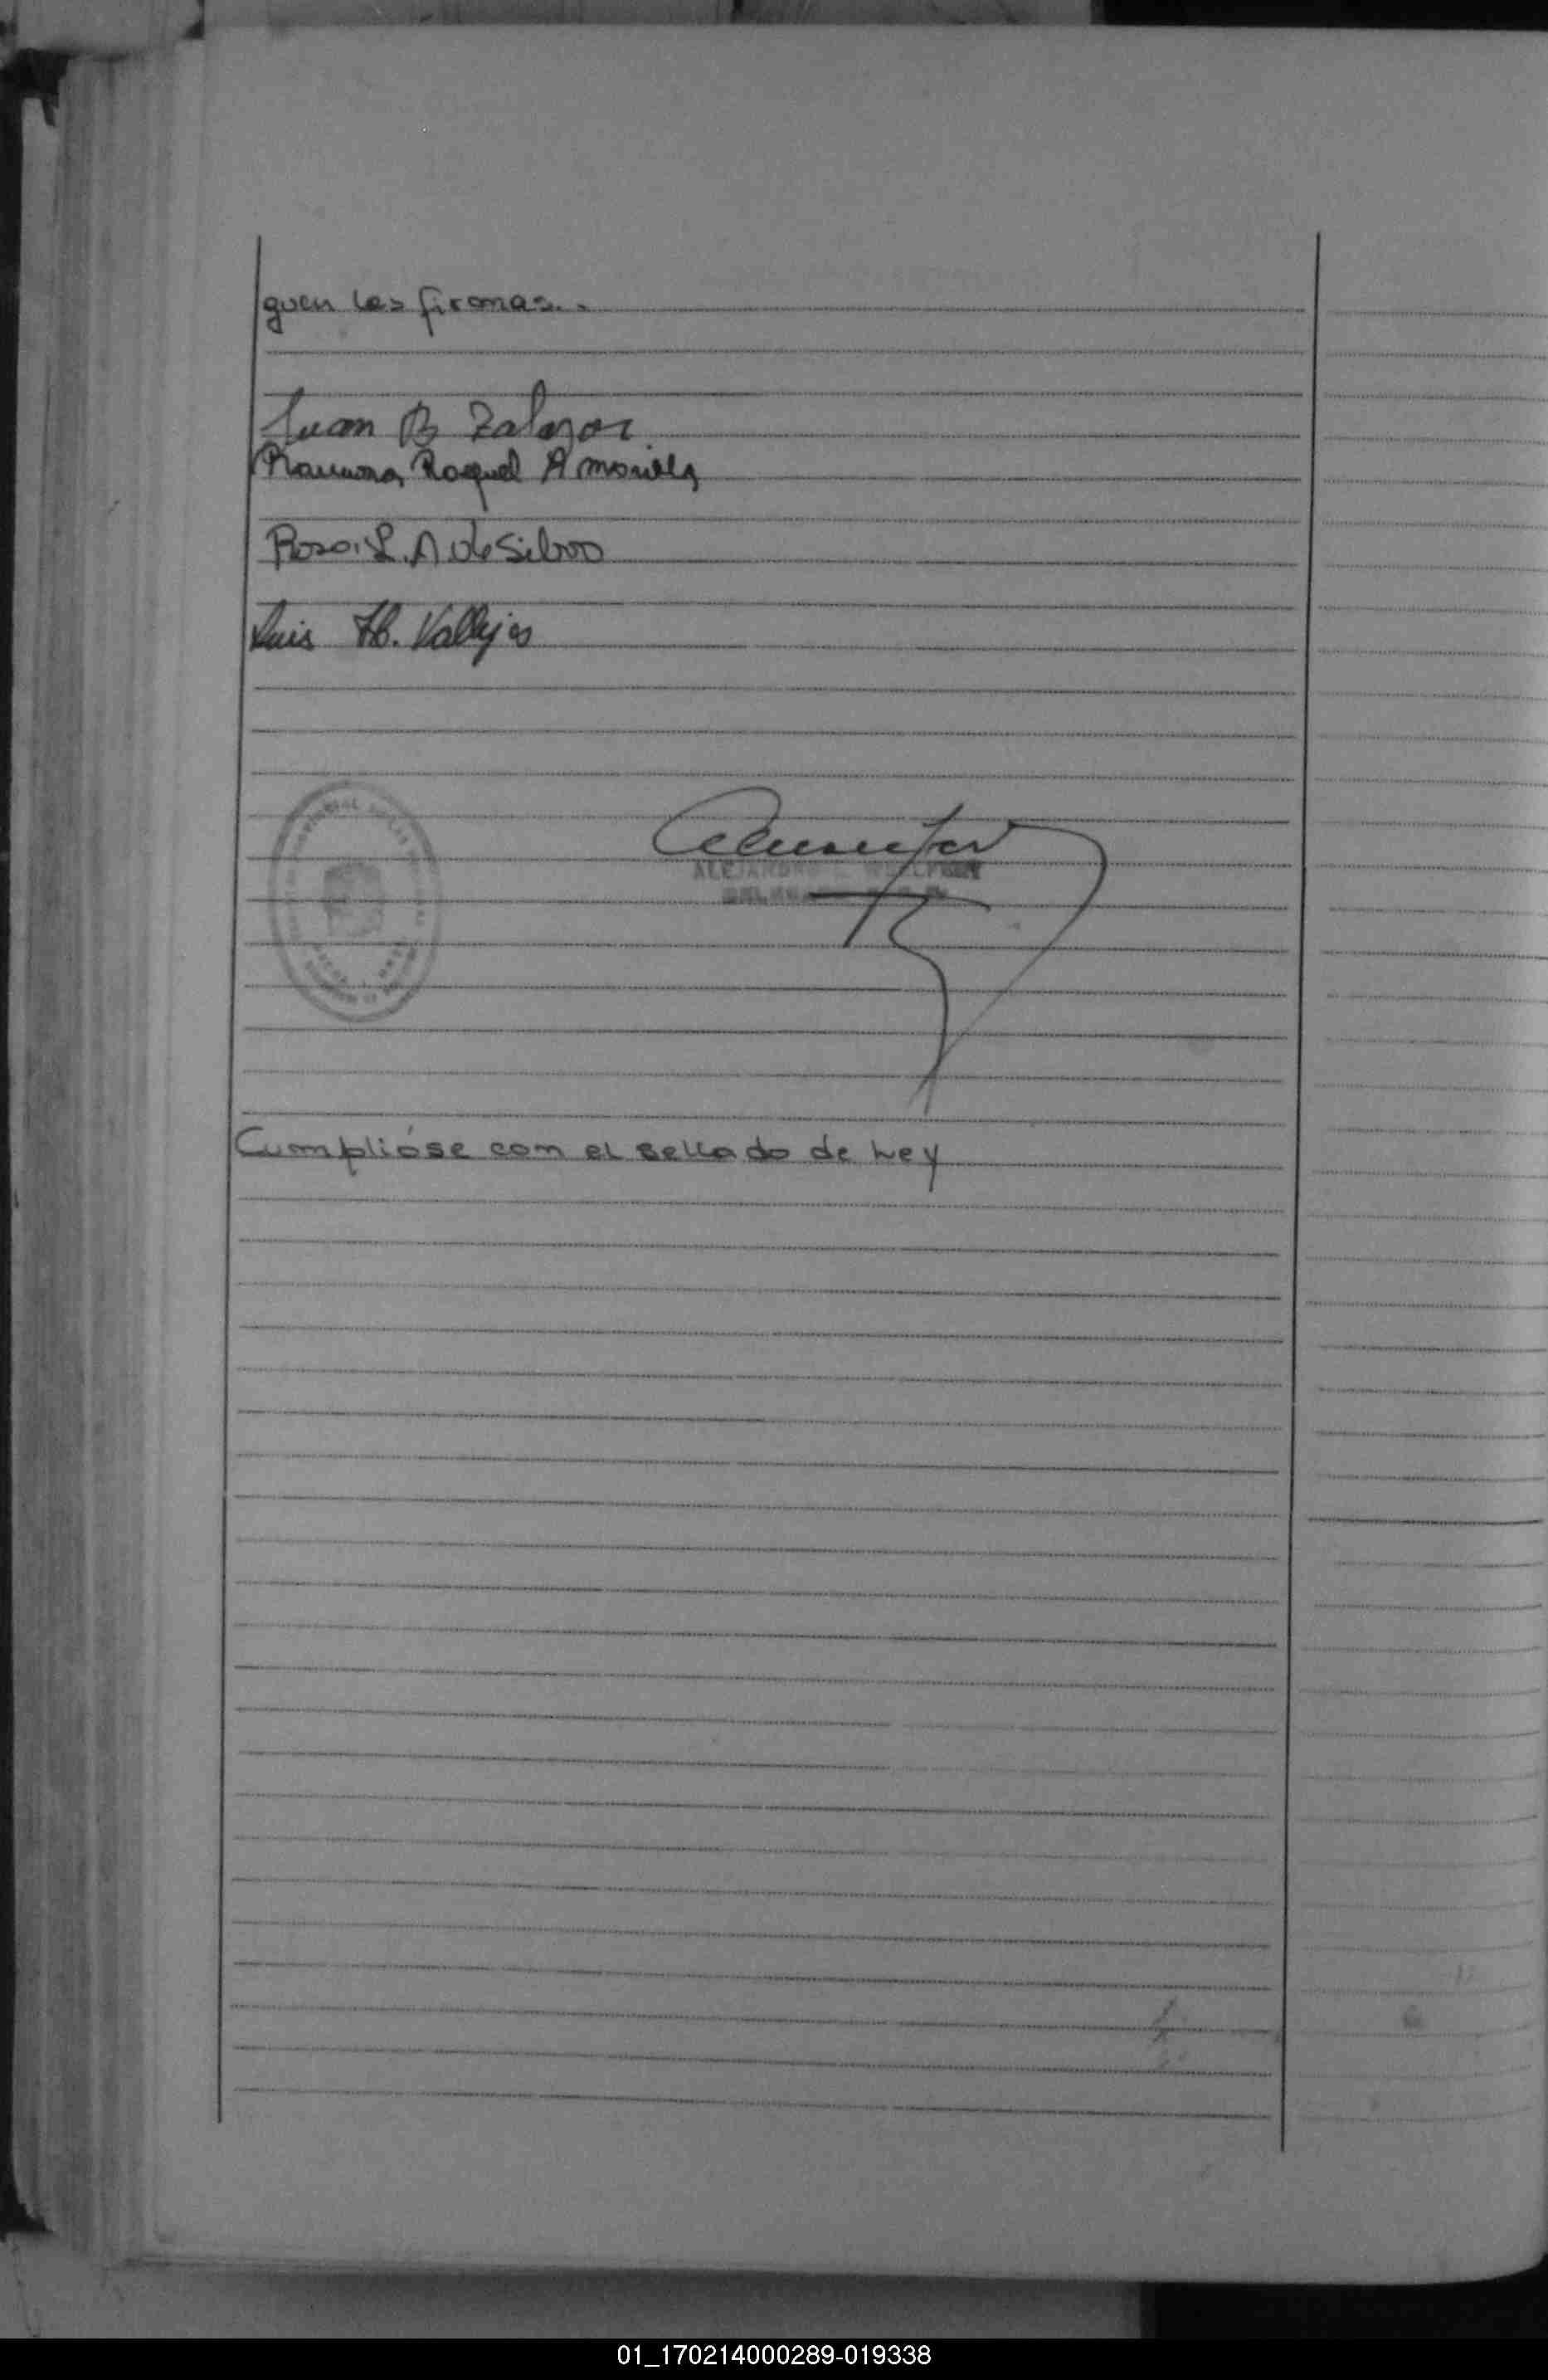 guen las firmas..
Juan B Zalazar
Ramona Raquel Amarilla
Rosa L. A de Silva
Luis H. Vallejos
ALEJANDRO
Cumplióse con el sellado de Ley
01_170214000289-019338